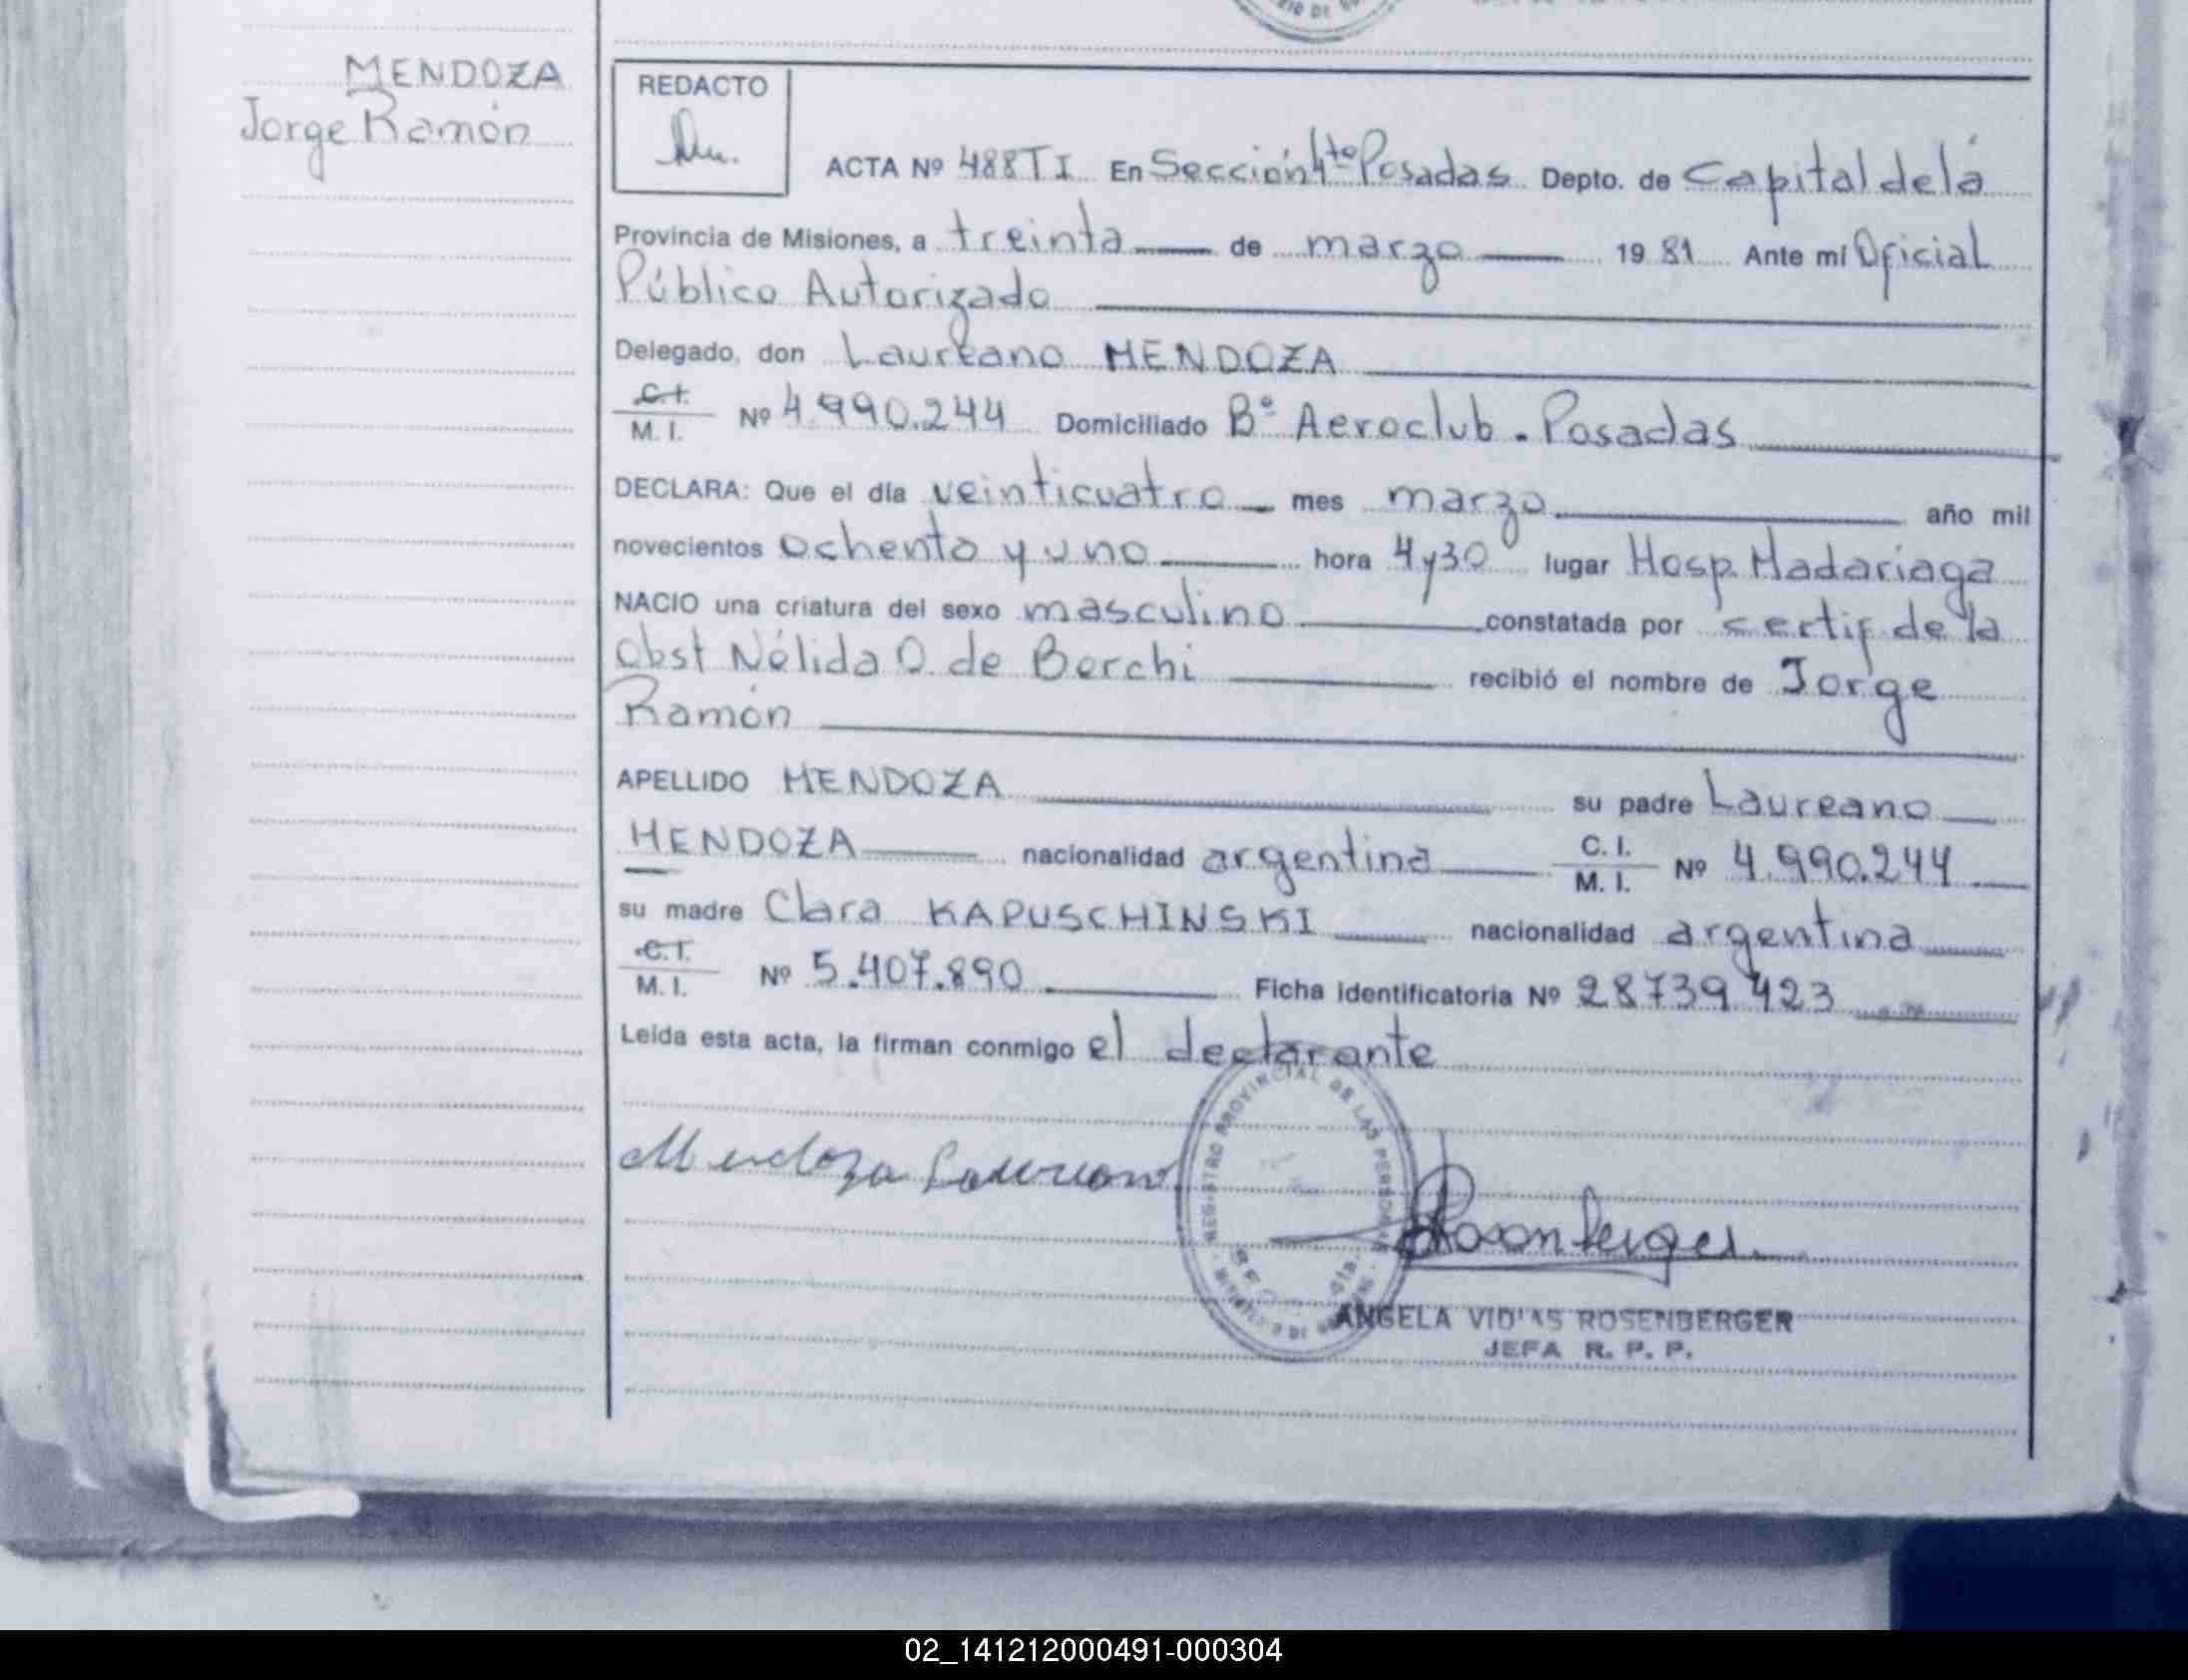 MENDOZA
Jorge Ramón
REDACTO
ACTA Nº 488 T I En Sección 4ta Posadas Depto. de Capital de la
Provincia de Misiones, a treinta de marzo 19 81 Ante mi Oficial
Público Autorizado
Delegado, don Laureano MENDOZA
C.I. M. I. Nº 4.990.244 Domiciliado Bº Aeroclub - Posadas
DECLARA: Que el día veinticuatro mes marzo año mil
novecientos ochenta y uno hora 4 y 30 lugar Hosp. Madariaga
NACIO una criatura del sexo masculino constatada por certif. de la
Obst Nélida O. de Berchi recibió el nombre de Jorge
Ramón
APELLIDO MENDOZA su padre Laureano
MENDOZA nacionalidad argentina C. I. M. I. Nº 4.990.244
su madre Clara KAPUSCHINSKI nacionalidad argentina
C.I. M. I. Nº 5.407.890 Ficha identificatoria Nº 28739423
Leída esta acta, la firman conmigo el declarante
REGISTRO PROVINCIAL DE LAS PERSONAS
Mendoza Laureano
Rosenberger
ANGELA ROSENBERGER
JEFA R. P. P.
02_141212000491-000304